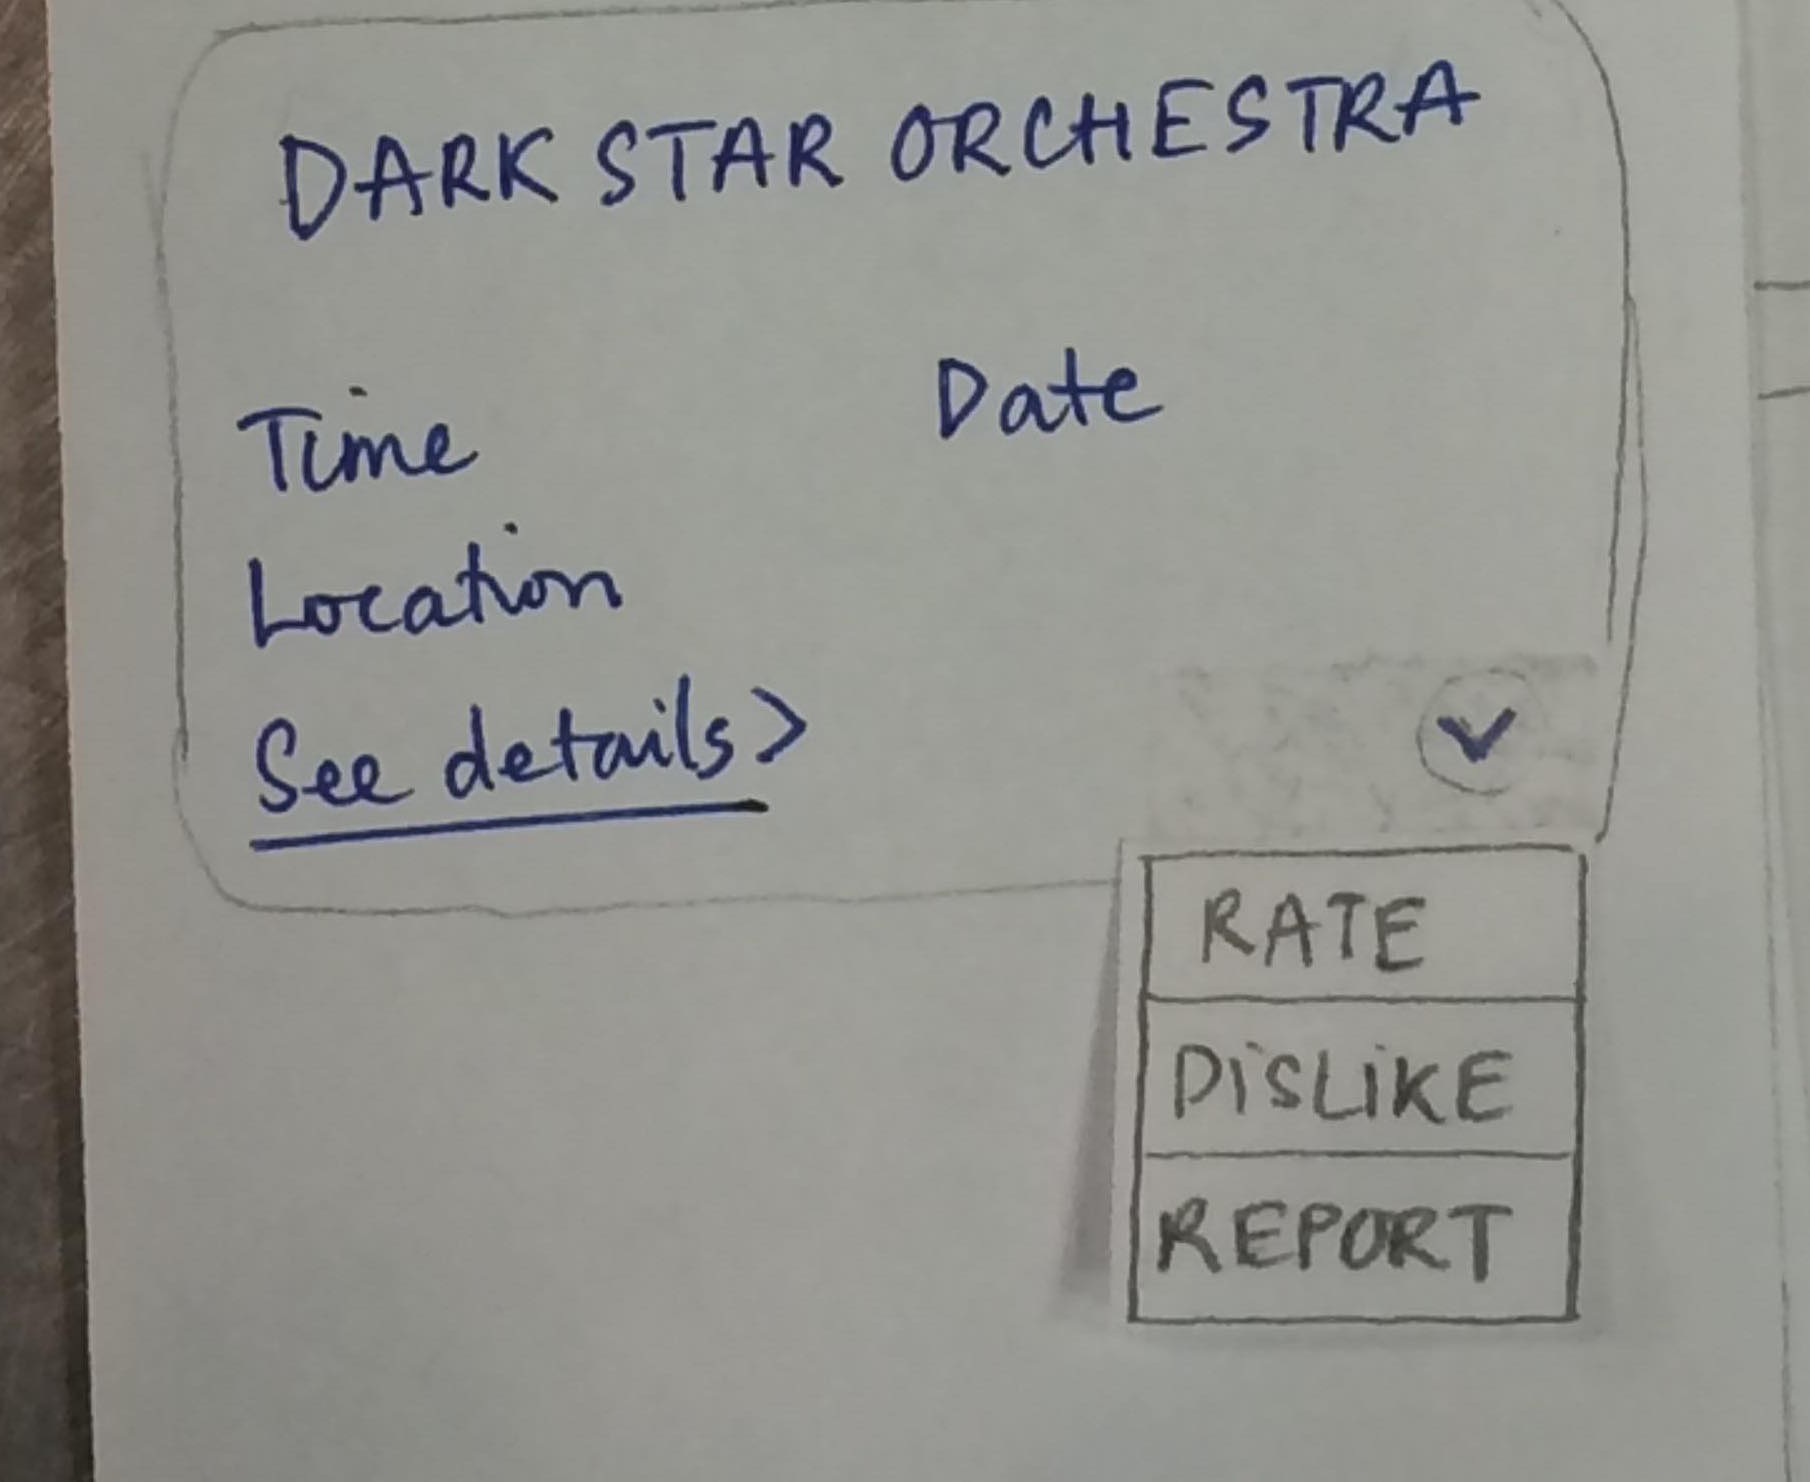 DARK STAR ORCHESTRA
Time Date
Location
See details >
RATE
DISLIKE
REPORT